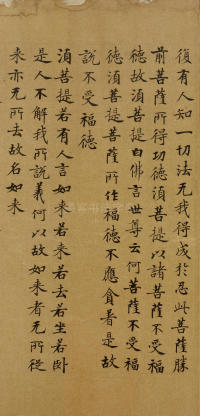 復有人知一切法无我得成於忍此菩薩勝
前菩薩所得功德須菩提以諸菩薩不受福
德故須菩提白佛言世尊云何菩薩不受福
德須菩提菩薩所作福德不應貪著是故
說不受福德
須菩提若有人言如来若来若去若坐若卧
是人不解我所說義何以故如来者无所從
来亦无所去故名如来